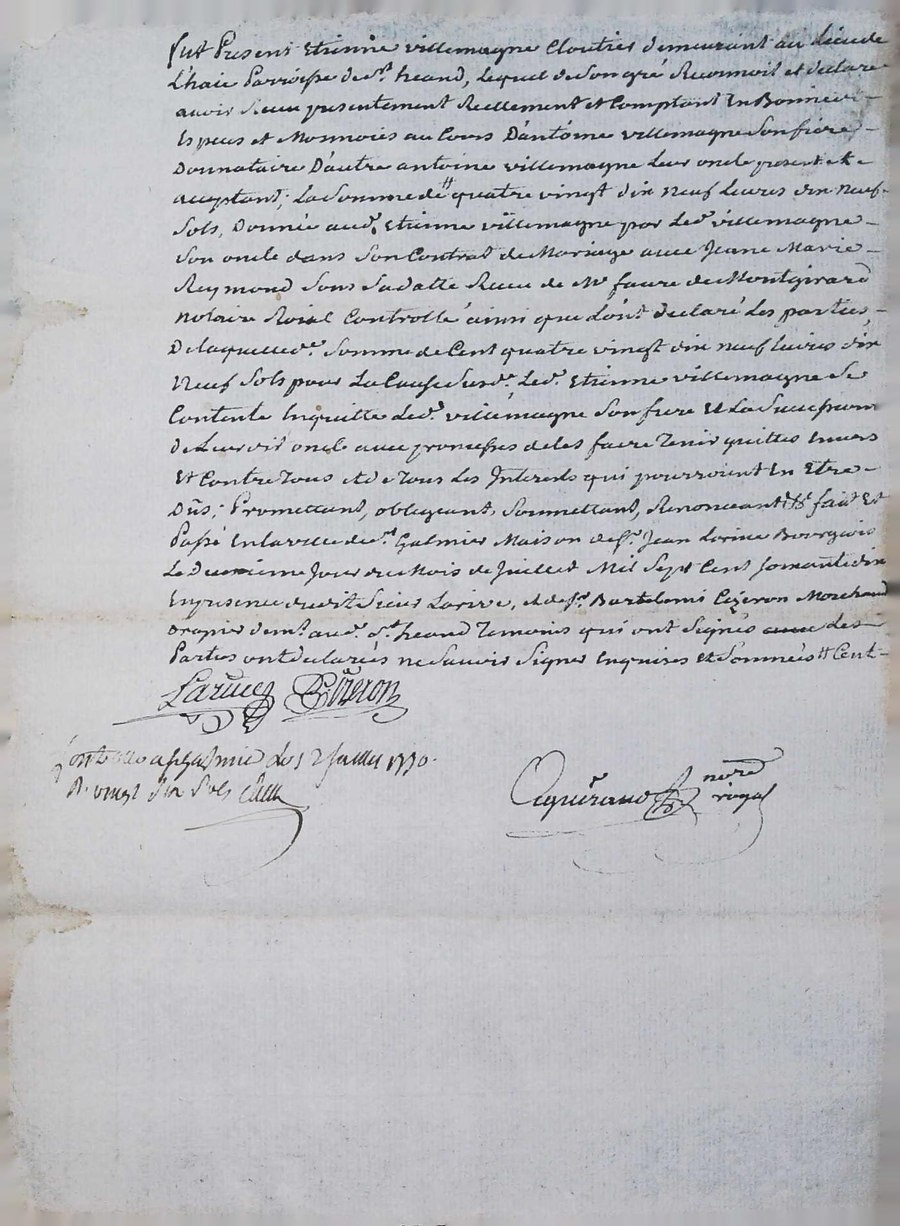 Fut Present Etienne villemagne Cloutier demeurant au Lieu de
L'haie Parroisse de st heand, Lequel de Son gré Reconnoit et declare
avoir Receu presentement Reellement et Comptant En Bonnes
Especes et Monnoies au Cours D'antoine villemagne Son frere
Donnataire D'autre antoine villemagne Leur oncle present et
acceptant; La Somme de # quatre vingt dix neuf Livres dix neuf
Sols, Donnée aud. Etienne villemagne par Led. villemagne
Son oncle dans Son Contrat de Mariage avec Jeane Marie
Reymond Sous Sa datte Receu de Me faure de Montgirard
Notaire Roial Controllé ainsi que L'ont declaré Les parties,
De laquelle de. Somme de Cent quatre vingt dix neuf Livres dix
Neuf Sols pour La Cause Susd. Led. Etienne villemagne Se
Contente Enquitte Led. villemagne Son frere Et La Succession
de Leur dit oncle avec promesses de les faire Tenir quittes Envers
Et Contre Tous et de Tous Les Interests qui pourroient En Etre
Dûs; Promettant, obligeant, Soummettant, Renonceant & fait Et
Passé En la ville de st Galmier Maison de sr. Jean Larive Bourgeois
Le Deuxieme Jour du Mois de Juillet Mil Sept Cent Soixante dix
En presence dudit Sieur Larive, et de sr. Bartelemi Cozeron Marchand
drapier demt. aud. st heand Temoins qui ont Signés Les
Parties ont declarées ne Savoir Signer Enquises et Sommées # Cent
Larive Cozeron
Controllé a st Galmier Le 12 Juillet 1770.
R. vingt Six Sols
nore
royal